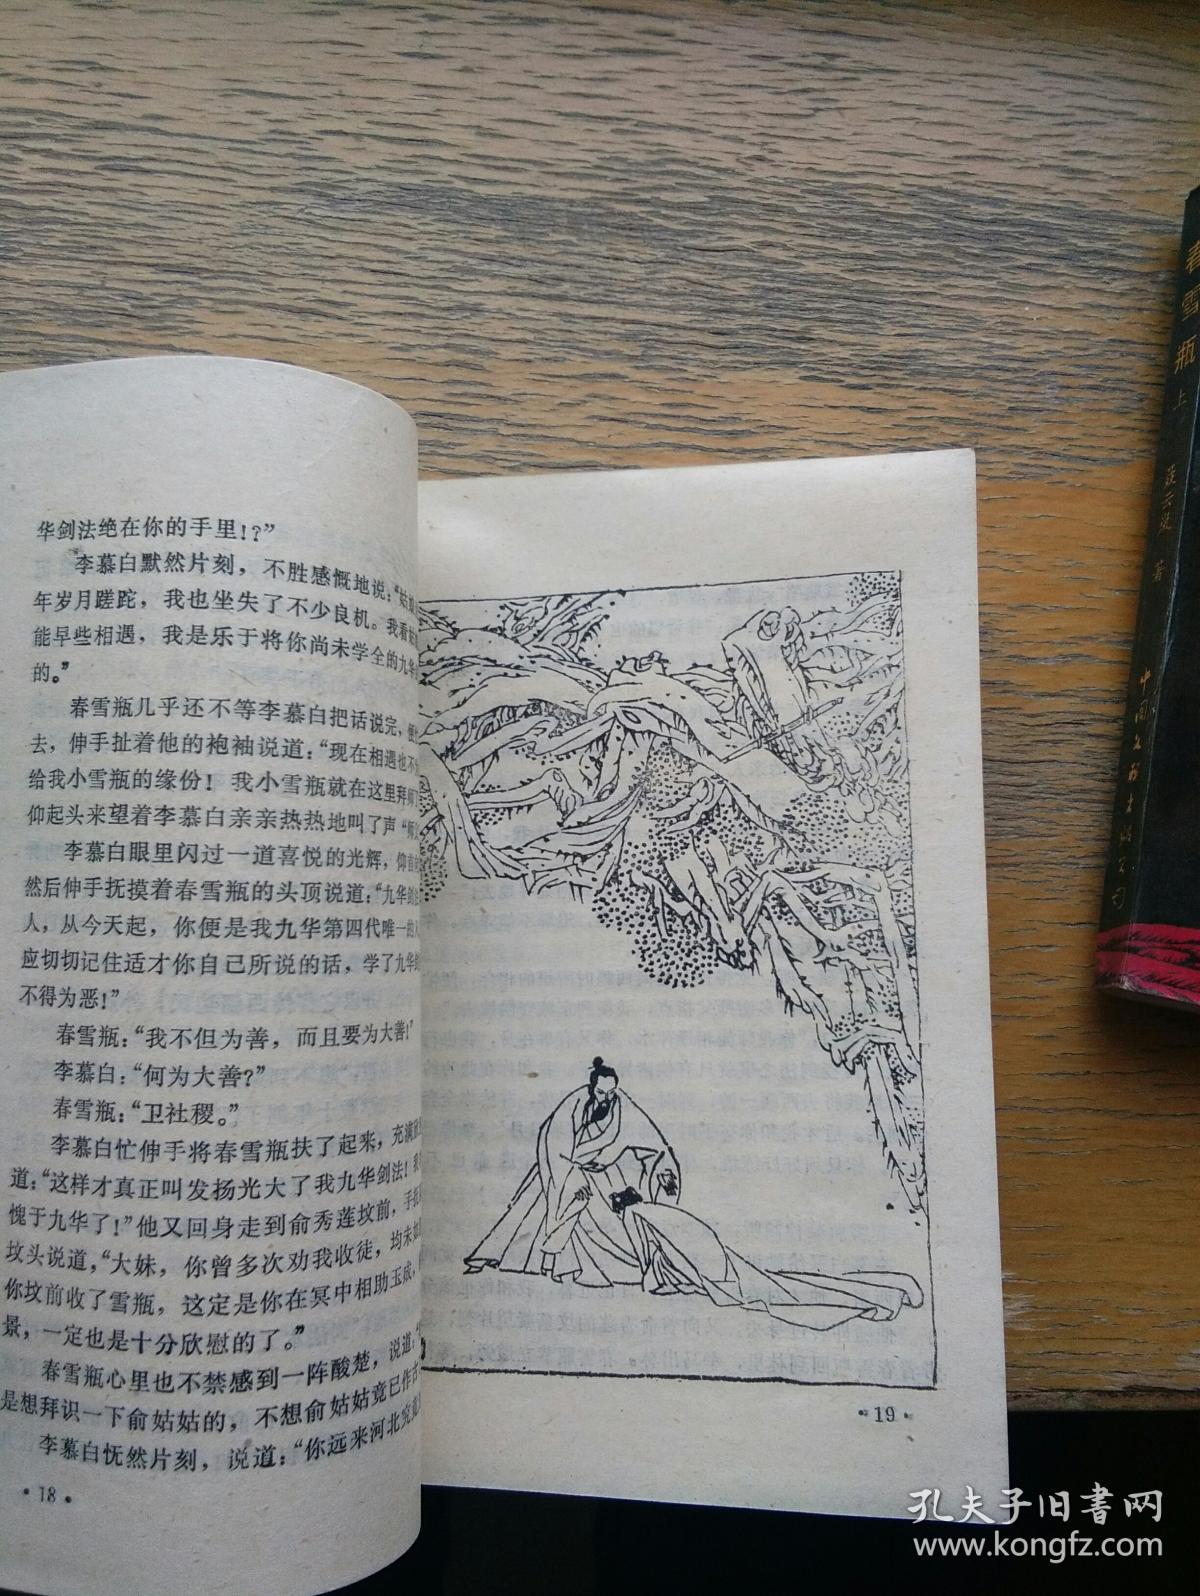 华剑法绝在你的手里！？”
李慕白默然片刻，不胜感慨地说：“姑
年岁月蹉跎，我也坐失了不少良机。我看
能早些相遇，我是乐于将你尚未学全的九华
的。”
春雪瓶几乎还不等李慕白把话说完，便
去，伸手扯着他的袍袖说道：“现在相遇也不
给我小雪瓶的缘份！我小雪瓶就在这里拜师了
仰起头来望着李慕白亲亲热热地叫了声“师
李慕白眼里闪过一道喜悦的光辉，仰首
然后伸手抚摸着春雪瓶的头顶说道：“九华剑
人，从今天起，你便是我九华第四代唯一的
应切切记住适才你自己所说的话，学了九华
不得为恶！”
春雪瓶：“我不但为善，而且要为大善！”
李慕白：“何为大善？”
春雪瓶：“卫社稷。”
李慕白忙伸手将春雪瓶扶了起来，充满
道：“这样才真正叫发扬光大了我九华剑法！
愧于九华了！”他又回身走到俞秀莲坟前，手
坟头说道，“大妹，你曾多次劝我收徒，均未
你坟前收了雪瓶，这定是你在冥中相助玉成，
景，一定也是十分欣慰的了。”
春雪瓶心里也不禁感到一阵酸楚，说道：
是想拜识一下俞姑姑的，不想俞姑姑竟已作古
李慕白怃然片刻，说道：“你远来河北究竟
·18·
·19·
春雪瓶 上 聂云岚 著 中国文联出版公司
孔夫子旧书网
www.kongfz.com